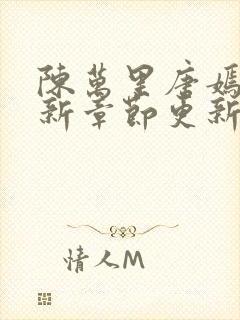 陳萬里唐嫣
新章節更新
情人M